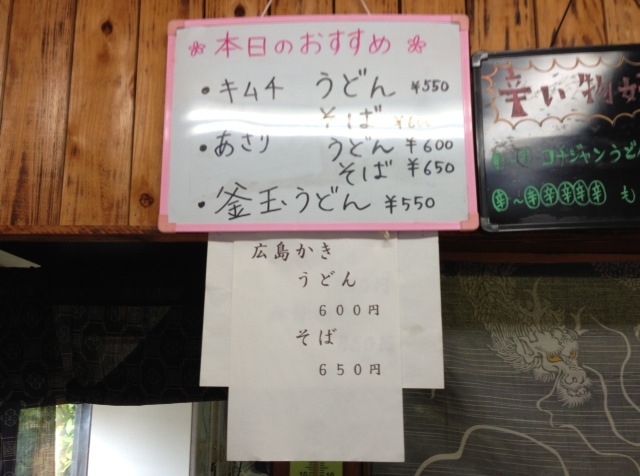 本日のおすすめ
・キムチ うどん ¥550
そば ¥600
・あさり うどん ¥600
そば ¥650
・釜玉うどん ¥550
広島かき
うどん
600円
そば
650円
辛い物
コチジャンうど
辛~辛辛辛辛辛 も